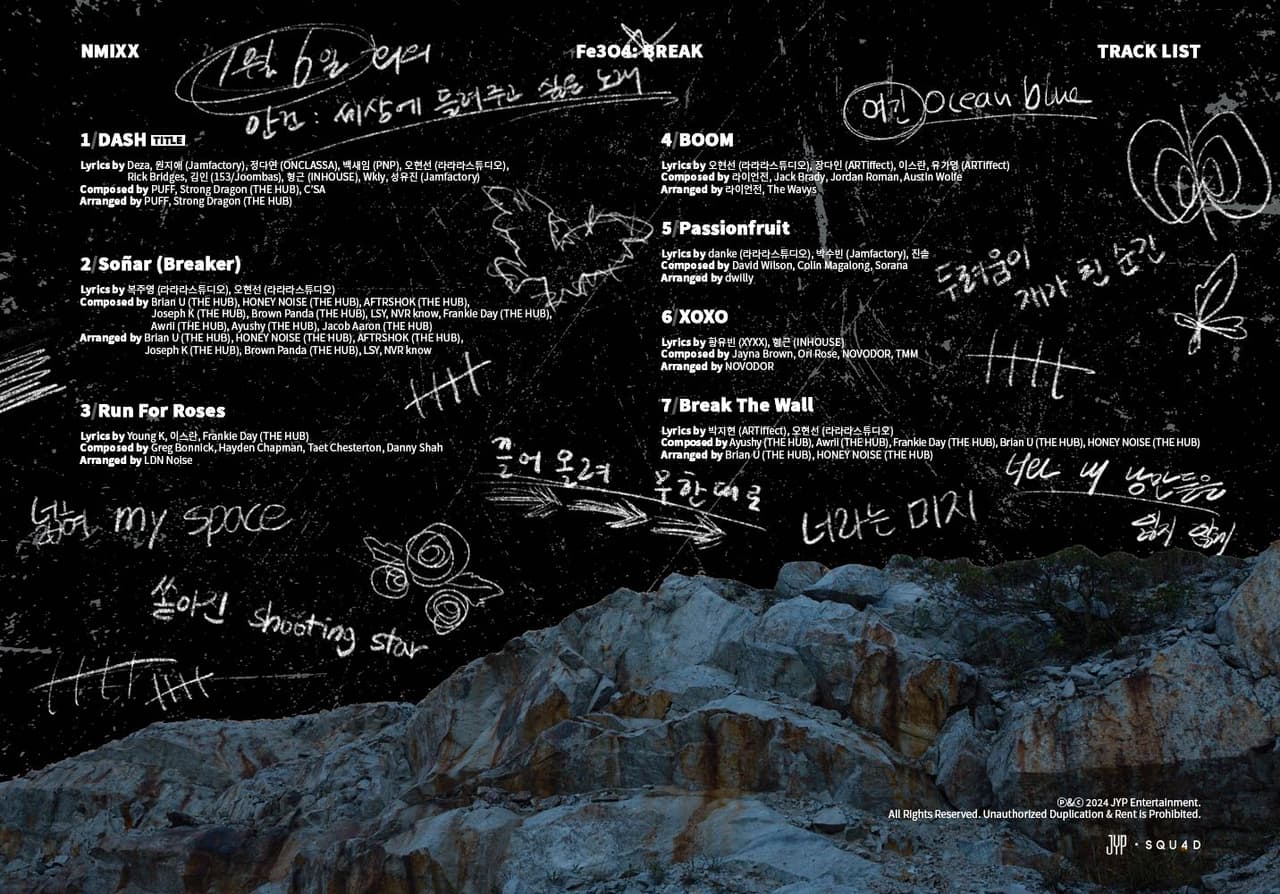 NMIXX
Fe3O4: BREAK
TRACK LIST
1월 6일 회의
안건 : 세상에 들려주고 싶은 노래
여긴 Ocean blue
1/DASH TITLE
Lyrics by Deza, 원지애 (Jamfactory), 정다연 (ONCLASSA), 백새임 (PNP), 오현선 (라라라스튜디오),
Rick Bridges, 김인 (153/Joombas), 형근 (INHOUSE), Wkly, 성유진 (Jamfactory)
Composed by PUFF, Strong Dragon (THE HUB), C'SA
Arranged by PUFF, Strong Dragon (THE HUB)
2/Soñar (Breaker)
Lyrics by 목주영 (라라라스튜디오), 오현선 (라라라스튜디오)
Composed by Brian U (THE HUB), HONEY NOISE (THE HUB), AFTRSHOK (THE HUB),
Joseph K (THE HUB), Brown Panda (THE HUB), LSY, NVR know, Frankie Day (THE HUB),
Awrii (THE HUB), Ayushy (THE HUB), Jacob Aaron (THE HUB)
Arranged by Brian U (THE HUB), HONEY NOISE (THE HUB), AFTRSHOK (THE HUB),
Joseph K (THE HUB), Brown Panda (THE HUB), LSY, NVR know
3/Run For Roses
Lyrics by Young K, 이스란, Frankie Day (THE HUB)
Composed by Greg Bonnick, Hayden Chapman, Taet Chesterton, Danny Shah
Arranged by LDN Noise
4/BOOM
Lyrics by 오현선 (라라라스튜디오), 장다인 (ARTiffect), 이스란, 유가영 (ARTiffect)
Composed by 라이언전, Jack Brady, Jordan Roman, Austin Wolfe
Arranged by 라이언전, The Wavys
5/Passionfruit
Lyrics by danke (라라라스튜디오), 박수빈 (Jamfactory), 진솔
Composed by David Wilson, Colin Magalong, Sorana
Arranged by dwilly
두려움이
재가 된 순간
6/XOXO
Lyrics by 황유빈 (XYXX), 형근 (INHOUSE)
Composed by Jayna Brown, Ori Rose, NOVODOR, TMM
Arranged by NOVODOR
7/Break The Wall
Lyrics by 박지현 (ARTiffect), 오현선 (라라라스튜디오)
Composed by Ayushy (THE HUB), Awrii (THE HUB), Frankie Day (THE HUB), Brian U (THE HUB), HONEY NOISE (THE HUB)
Arranged by Brian U (THE HUB), HONEY NOISE (THE HUB)
끌어 올려
무한대로
너와 내 낭만들은
넓혀 my space
너라는 미지
쏟아진 shooting star
Ⓟ&© 2024 JYP Entertainment.
All Rights Reserved. Unauthorized Duplication & Rent is Prohibited.
JYP · SQU4D